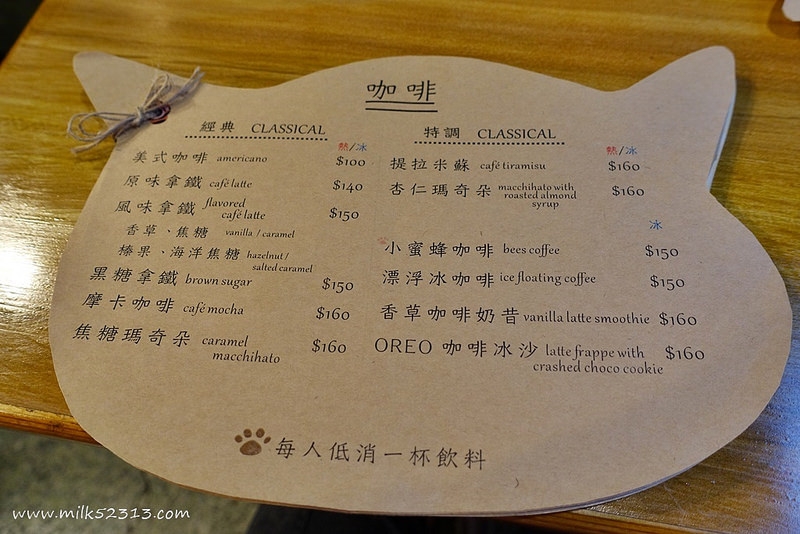 咖啡
經典 CLASSICAL
熱/冰
美式咖啡 americano $100
原味拿鐵 café latte $140
風味拿鐵 flavored café latte $150
香草、焦糖 vanilla / caramel
榛果、海洋焦糖 hazelnut / salted caramel
黑糖拿鐵 brown sugar $150
摩卡咖啡 café mocha $160
焦糖瑪奇朵 caramel macchihato $160
特調 CLASSICAL
熱/冰
提拉米蘇 café tiramisu $160
杏仁瑪奇朵 macchihato with roasted almond syrup $160
冰
小蜜蜂咖啡 bees coffee $150
漂浮冰咖啡 ice floating coffee $150
香草咖啡奶昔 vanilla latte smoothie $160
OREO 咖啡冰沙 latte frappe with crashed choco cookie $160
每人低消一杯飲料
www.milk52313.com